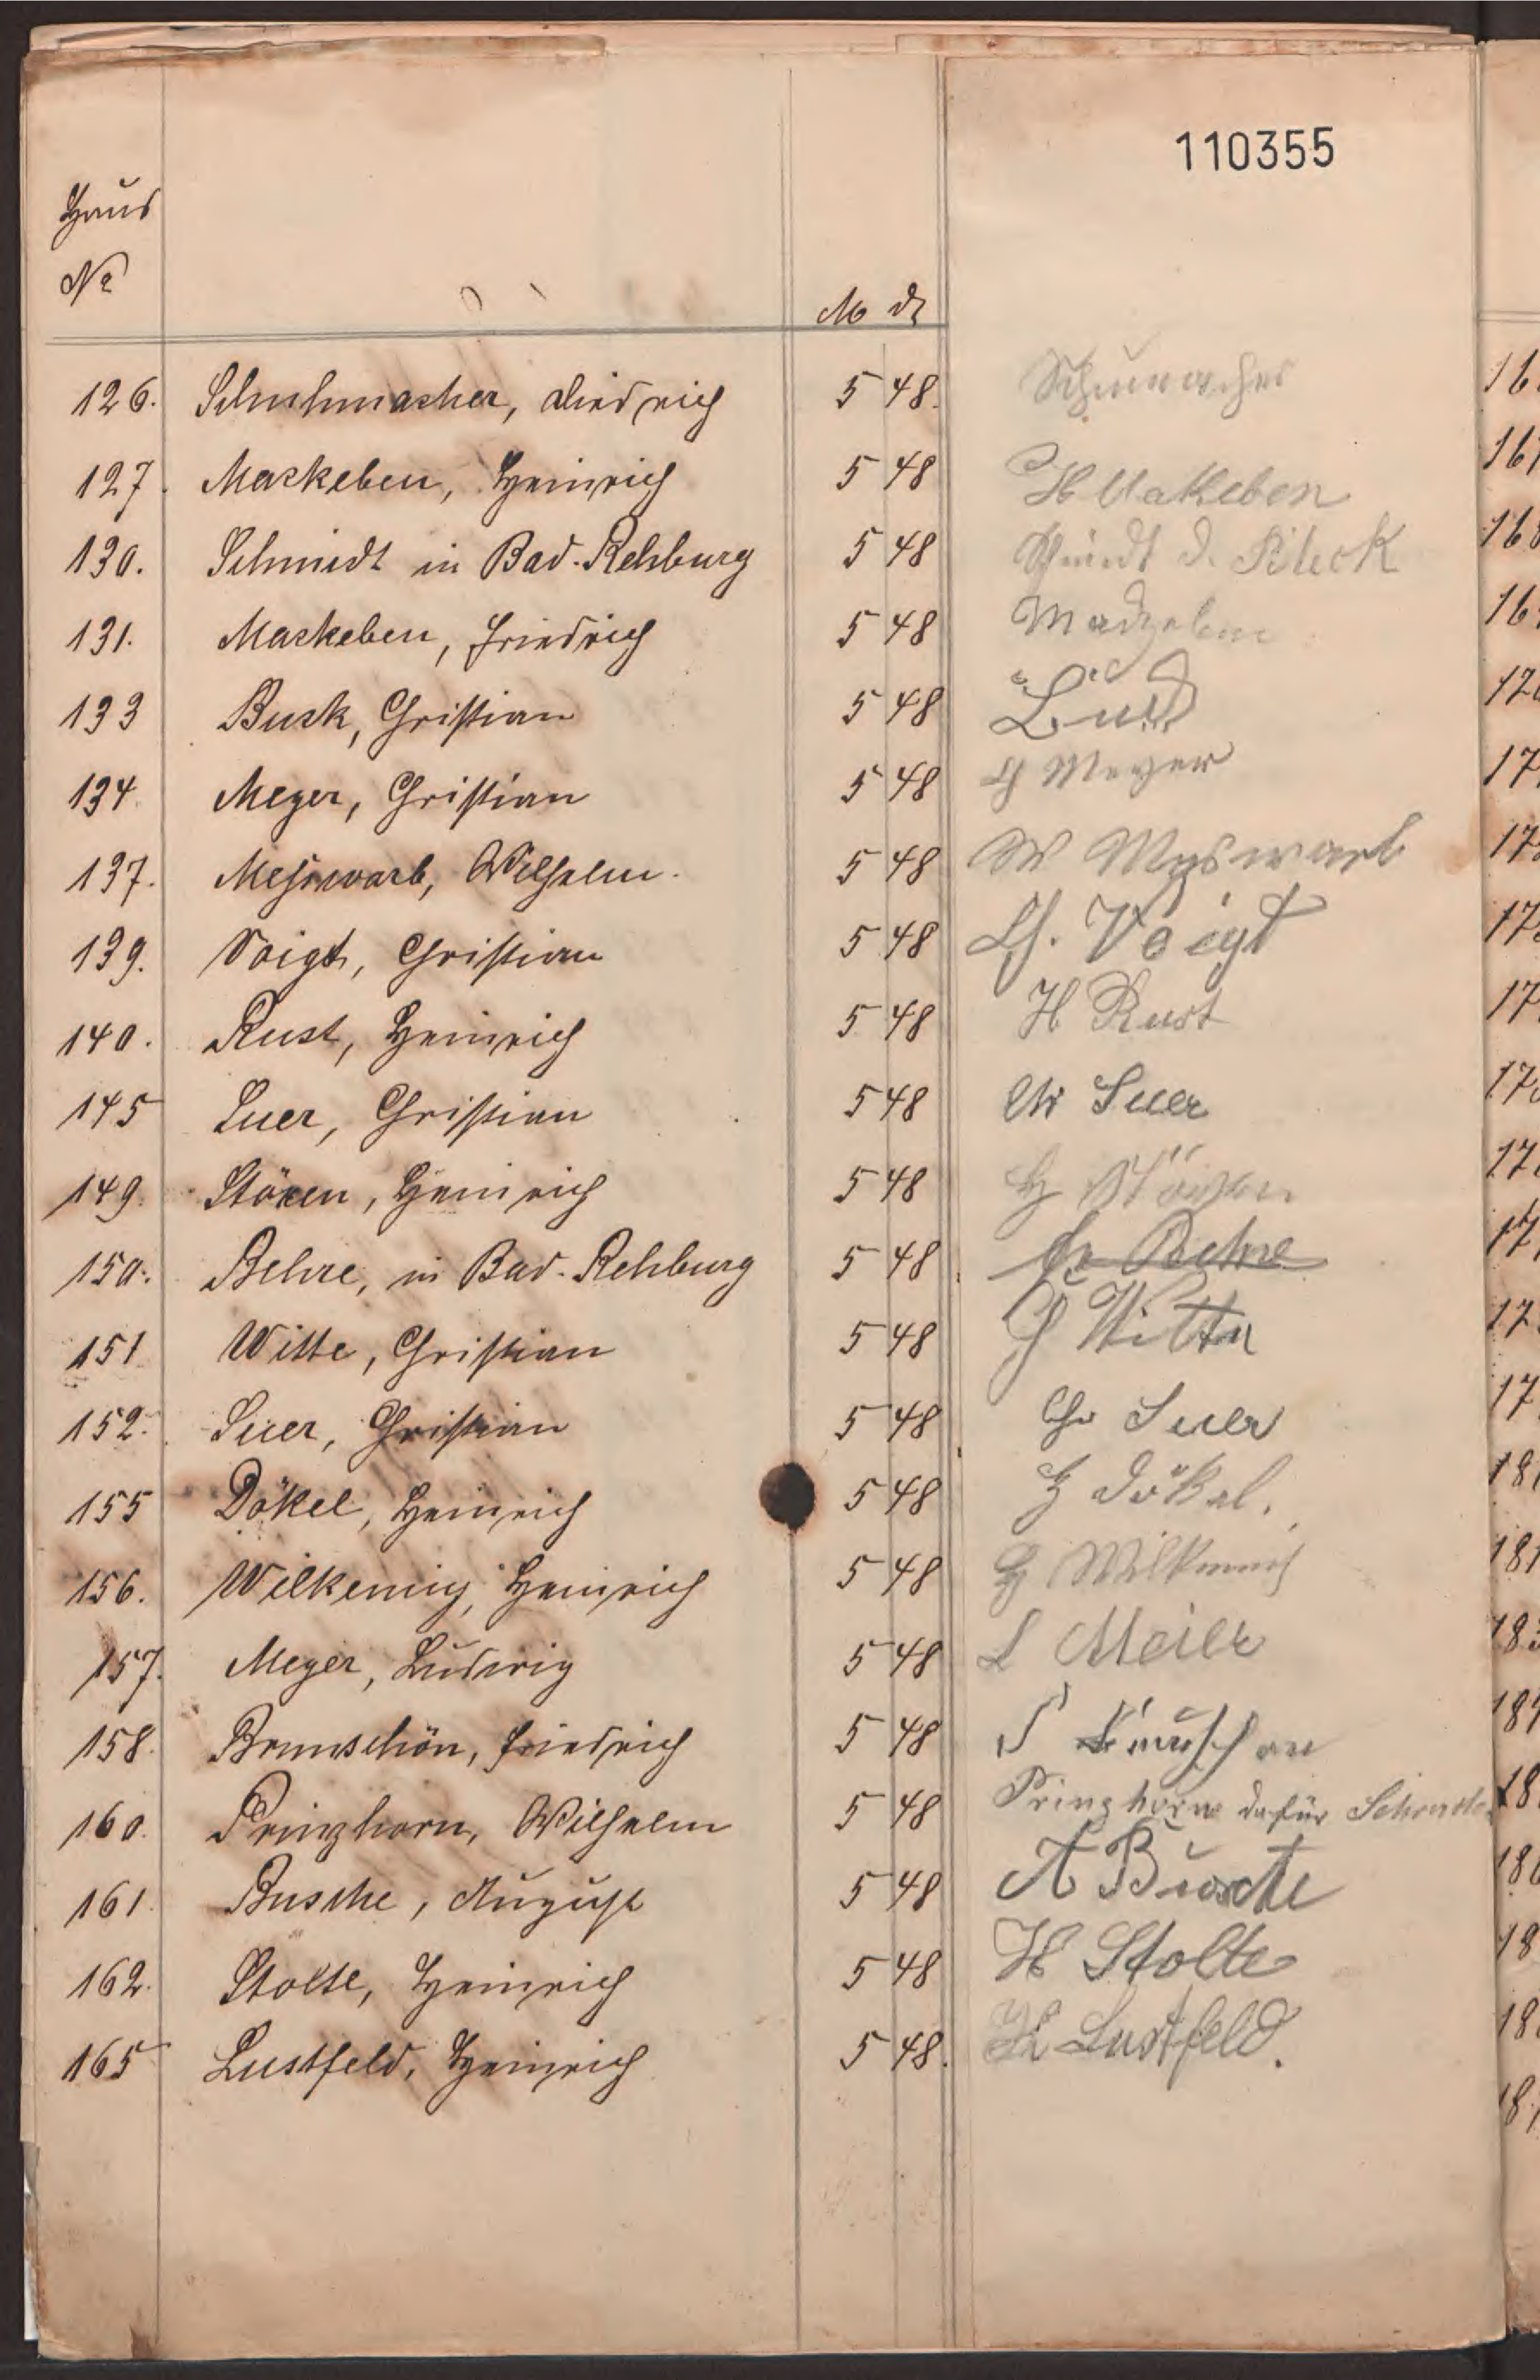 110355
Haus
No
M d
126. Schuhmacher, Diedrich 5 48. Schumacher
127. Mackeben, Heinrich 5 48 H Makeben
130. Schmidt in Bad-Rehburg 5 48
131. Mackeben, Friedrich 5 48
133 Busk, Christian 5 48
134. Meyer, Christian 5 48 Meyer
137. Meßwarb, Wilhelm. 5 48 W
139. Voigt, Christian 5 48 Ch. Voigt
140. Rust, Heinrich 5 48 H Rust
145 Suer, Christian 5 48 Chr Suer
149. Stöxen, Heinrich 5 48 H Stöxen
150. Behre, in Bad-Rehburg 5 48 Behre
151 Witte, Christian 5 48 Ch Witte
152. Suer, Christian 5 48 Chr Suer
155 Dökel, Heinrich 5 48 H Dökel.
156. Wilkening, Heinrich 5 48 H
157. Meyer, Ludwig 5 48 L Meier
158. Brunschön, Friedrich 5 48
160. Prinzhorn, Wilhelm 5 48 Prinzhorn dafür
161. Busche, August 5 48 A Busche
162. Stolte, Heinrich 5 48 H Stolte
165 Lustfeld, Heinrich 5 48. H Lustfeld.